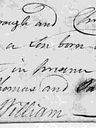 rough and
a son born
in presence
Thomas and
William